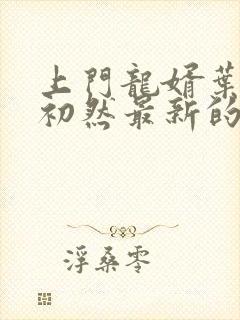 上門龍婿葉
初然最新的
浮桑零